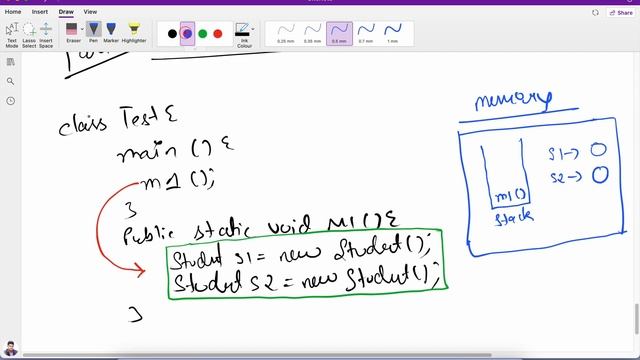 OneNote
Home Insert Draw View
Share
Text Mode
Lasso Select
Insert Space
Eraser
Pen
Marker
Highlighter
Ink Colour
0.25 mm
0.35 mm
0.5 mm
0.7 mm
1 mm
class Test {
main () {
m1 ();
}
Public static void M1 () {
Student s1 = new Student();
Student s2 = new Student();
}
memory
s1→
s2→
m1()
stack